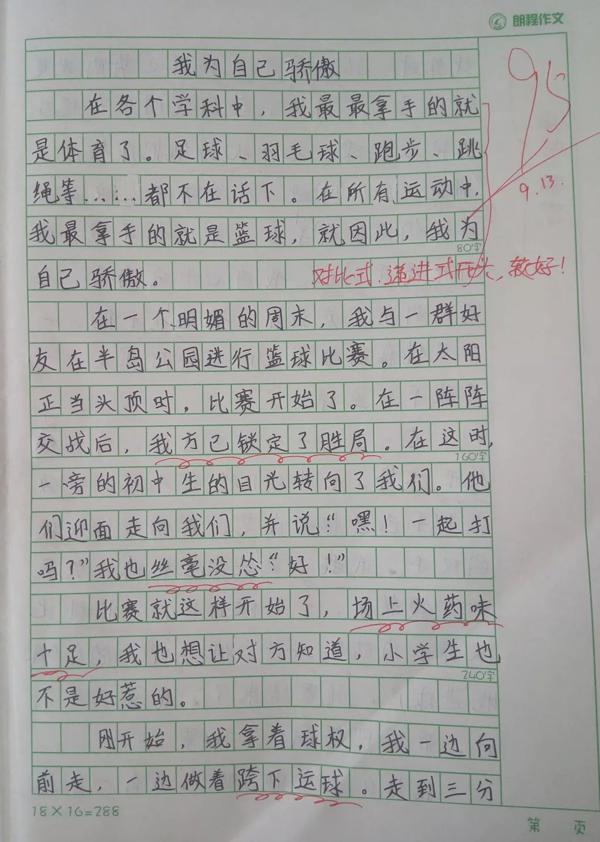 朗程作文
我为自己骄傲
95
在各个学科中，我最最拿手的就
是体育了。足球、羽毛球、跑步、跳
绳等……都不在话下。在所有运动中，
9.13.
我最拿手的就是篮球，就因此，我为
80字
自己骄傲。
对比式、递进式开头，较好！
在一个明媚的周末，我与一群好
友在半岛公园进行篮球比赛。在太阳
正当头顶时，比赛开始了。在一阵阵
交战后，我方已锁定了胜局。在这时，
160字
一旁的初中生的目光转向了我们。他
们迎面走向我们，并说“嘿！一起打
吗？”我也丝毫没怂“好！”
比赛就这样开始了，场上火药味
十足，我也想让对方知道，小学生也
240字
不是好惹的。
刚开始，我拿着球权，我一边向
前走，一边做着跨下运球。走到三分
18×16=288
第 页